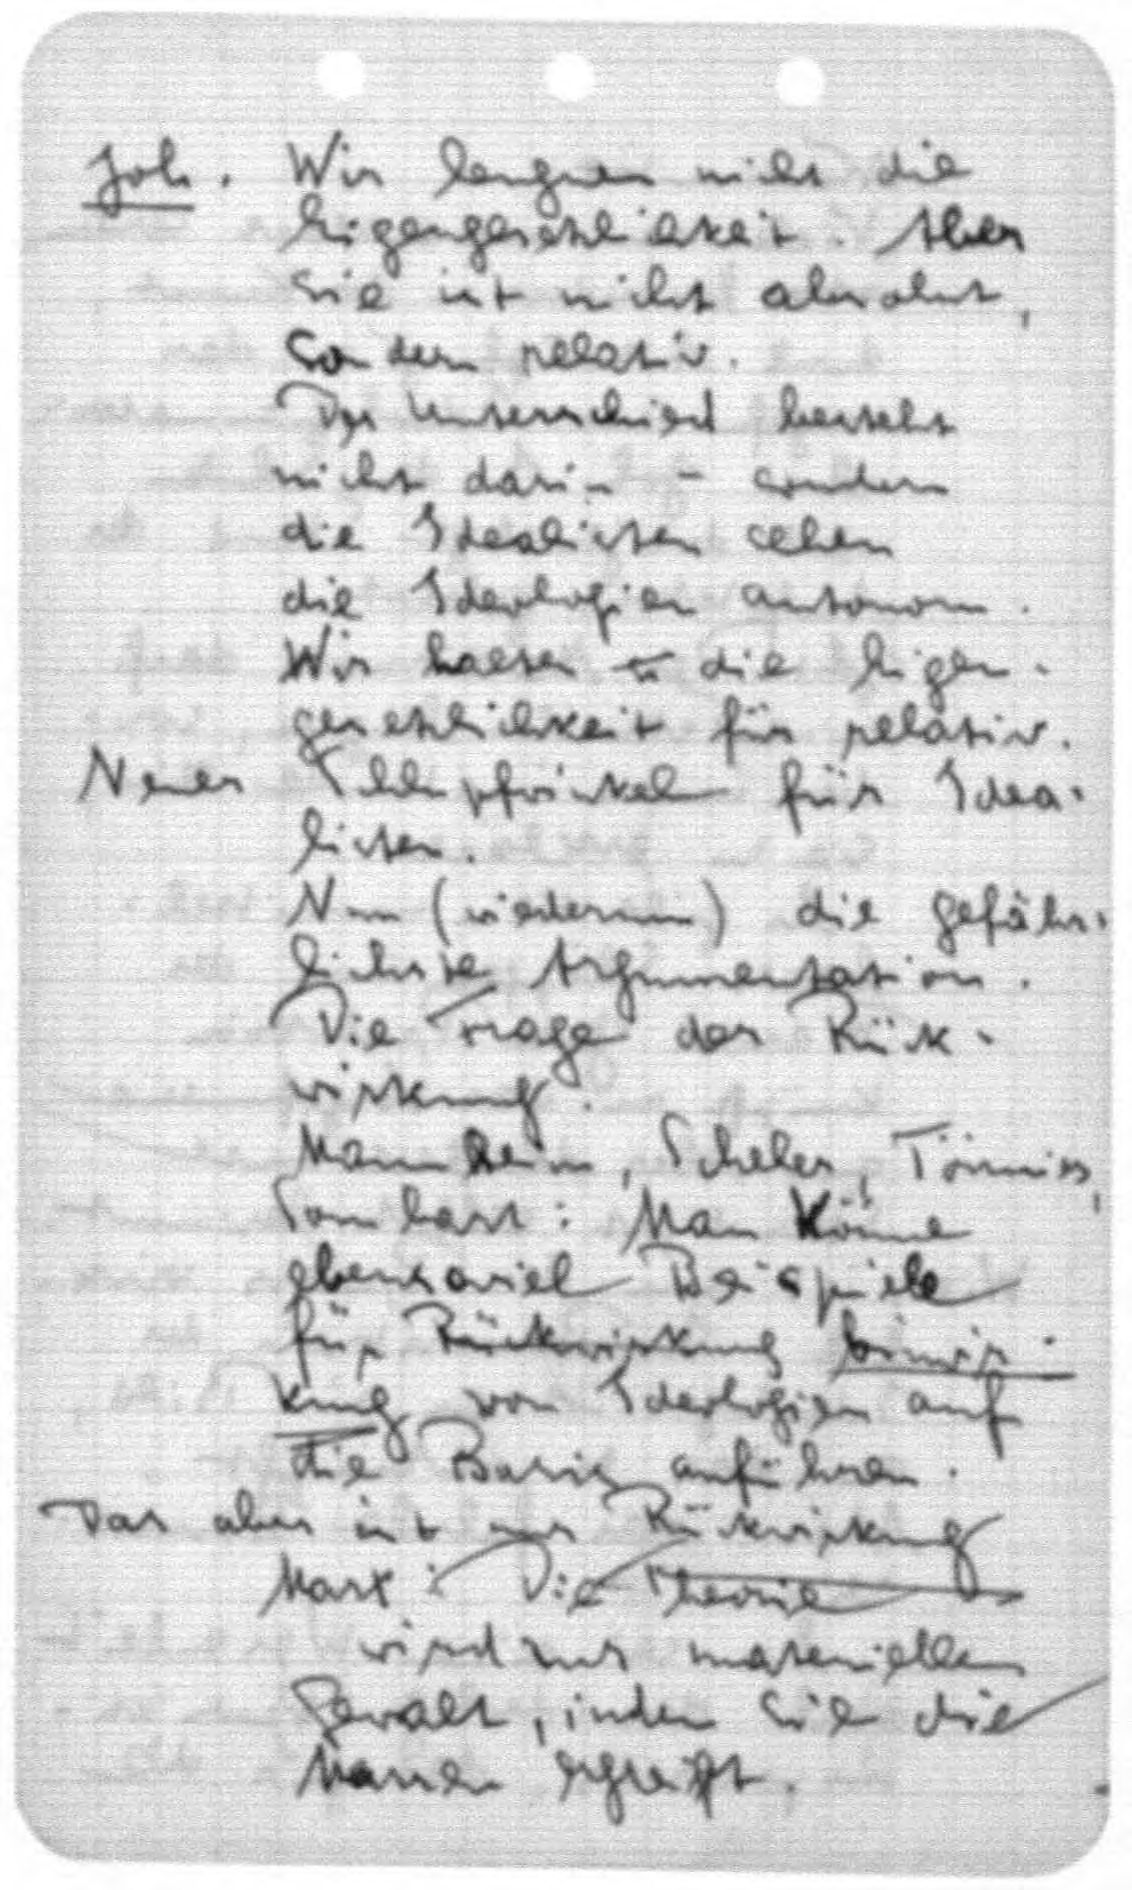 Joh. Wir leugnen nicht die
Eigengesetzlichkeit. Aber
sie ist nicht absolut,
sondern relativ.
Der Unterschied besteht
nicht darin – sondern
die Idealisten sehen
die Ideologien autonom.
Wir halten die Eigen-
gesetzlichkeit für relativ.
Neuer für Idea-
listen.
Nun (wiederum) die gefähr-
lichste Argumentation.
Die Frage der Rück-
wirkung.
Mannheim, Scheler, Tönnies,
Sombart: Man könne
ebensoviel Beispiele
für Rückwirkung Einwir-
kung von Ideologien auf
die Basis anführen.
Das aber ist nur Rückwirkung
Marx: Die Theorie
wird zur materiellen
Gewalt, indem sie die
Massen ergreift.